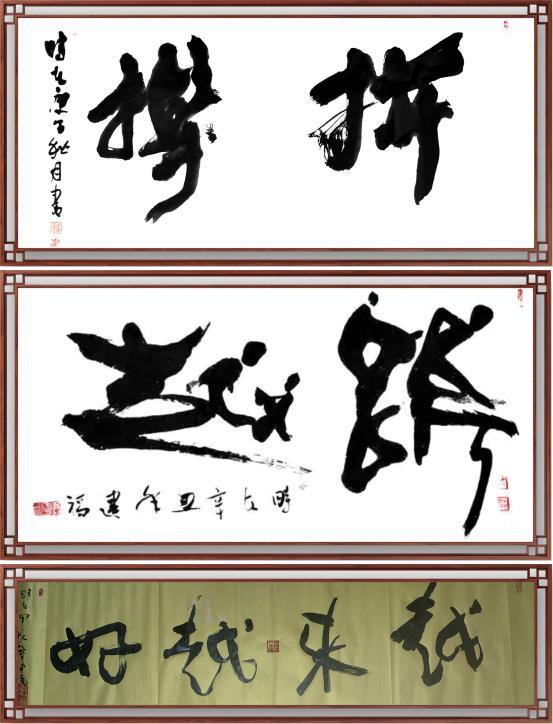 拼搏
時在庚子秋月書
跨越
時在辛丑冬建福
越来越好